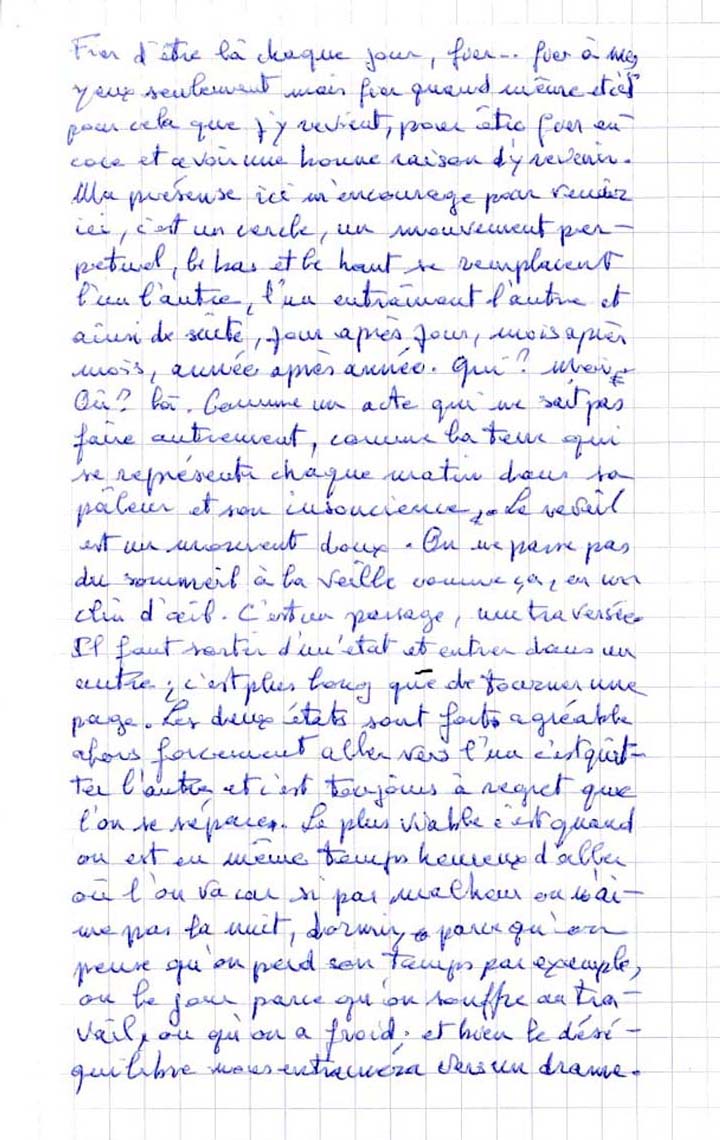 Fier d'être là chaque jour, fier... fier à mes
yeux seulement mais fier quand même et c'est
pour cela que j'y revient, pour être fier en-
core et avoir une bonne raison d'y revenir.
Ma présense ici m'encourage pour venir
ici, c'est un cercle, un mouvement per-
petuel, le bas et le haut se remplacent
l'un l'autre, l'un entraînant l'autre et
ainsi de suite, jour après jour, mois après
mois, année après année. Qui? Moi.
Où? Là. Comme un acte qui ne sait pas
faire autrement, comme la terre qui
se représente chaque matin dans sa
pâleur et son insouscience. Le reveil
est un moment doux. On ne passe pas
du sommeil à la veille comme ça, en un
clin d'œil. C'est un passage, une traversée.
Il faut sortir d'un état et entrer dans un
autre; c'est plus long que de tourner une
page. Les deux états sont forts agréable
alors forcement aller vers l'un c'est quit-
ter l'autre et c'est toujours à regret que
l'on se sépare. Le plus viable c'est quand
on est en même temps heureux d'aller
où l'on va car si par malheur on n'ai-
me pas la nuit, dormir, parce qu'on
pense qu'on perd son temps par exemple,
ou le jour parce qu'on souffre au tra-
vail, ou qu'on a froid. et bien le désé-
quilibre nous entrainera vers un drame.